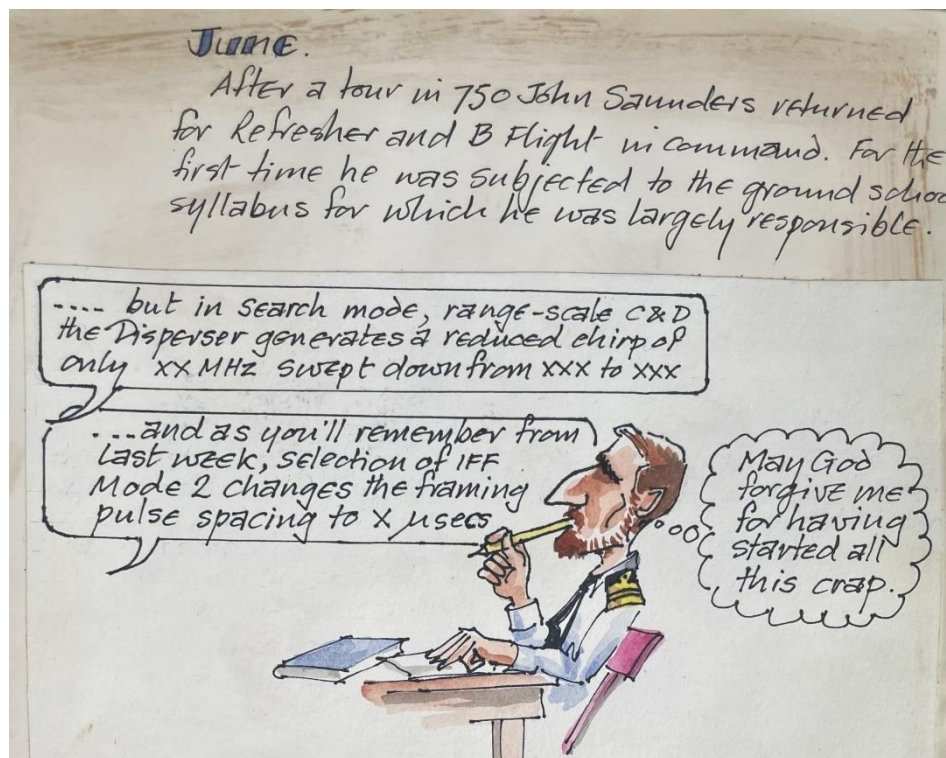 June.
After a tour in 750 John Saunders returned
for Refresher and B Flight in command. For the
first time he was subjected to the ground schoo
syllabus for which he was largely responsible.
.... but in search mode, range-scale C&D
the Disperser generates a reduced chirp of
only xx MHz swept down from xxx to xxx
....and as you'll remember from
last week, selection of IFF
Mode 2 changes the framing
pulse spacing to X μsecs
May God
forgive me
for having
started all
this crap.